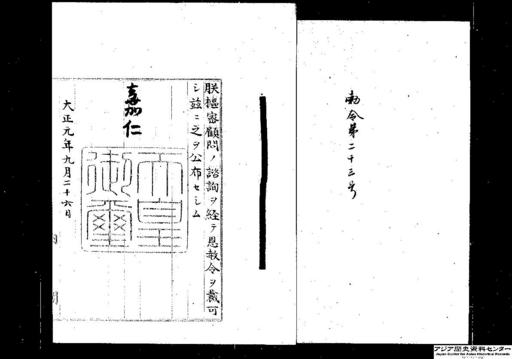 勅令第二十三号
朕樞密顧問ノ諮詢ヲ経テ恩赦令ヲ裁可
シ茲ニ之ヲ公布セシム
嘉仁
天皇
御璽
大正元年九月二十六日
アジア歴史資料センター
Japan Center for Asian Historical Records